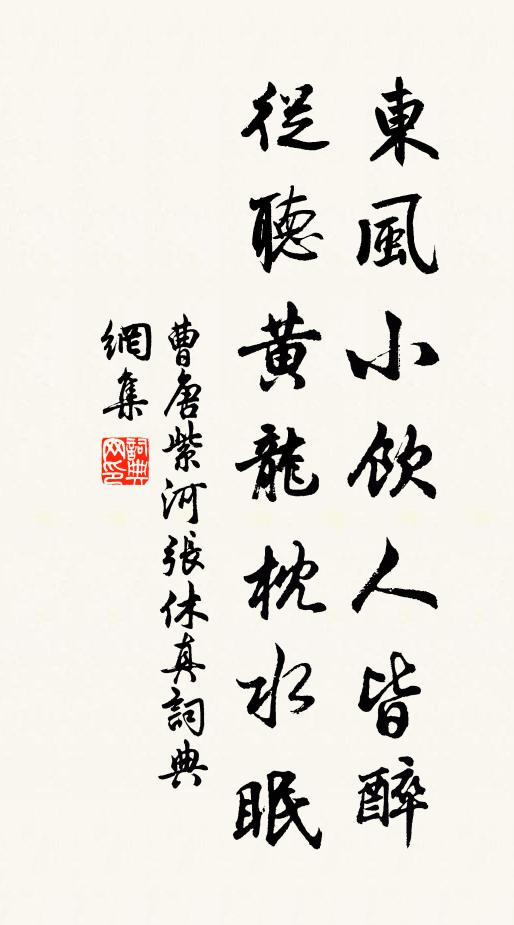 東風小飲人皆醉
從聽黃龍枕水眠
曹唐紫河張休真詞典
網集
詞典
网印